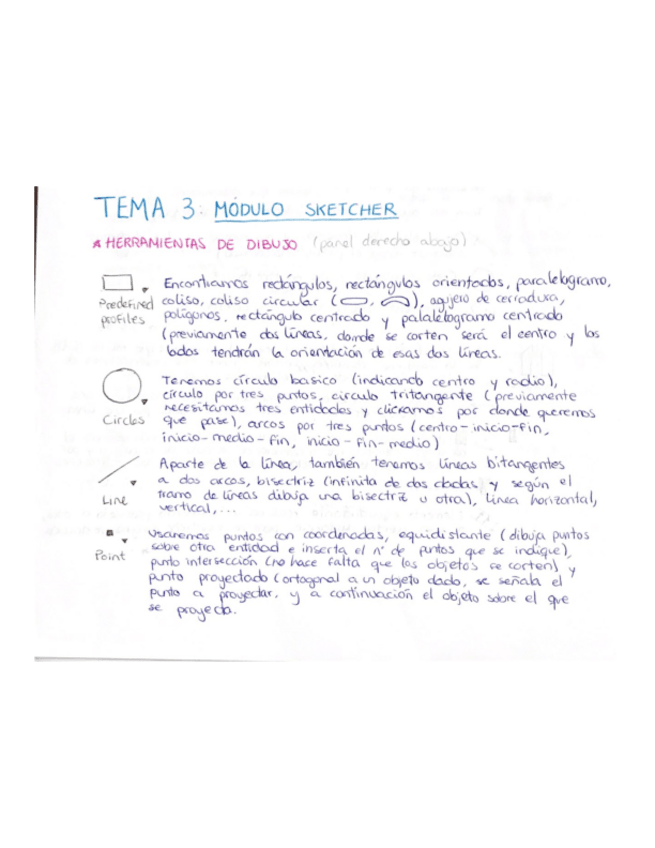 TEMA 3: MÓDULO SKETCHER
* HERRAMIENTAS DE DIBUJO (panel derecho abajo)
Predefined profiles
Encontramos rectángulos, rectángulos orientados, paralelogramo,
coliso, coliso circular ( , ), agujero de cerradura,
polígonos, rectángulo centrado y palalelogramo centrado
(previamente dos líneas, donde se corten será el centro y los
lados tendrán la orientación de esas dos líneas.
Circles
Tenemos círculo basico (indicando centro y radio),
círculo por tres puntos, circulo tritangente (previamente
necesitamos tres entidades y clickamos por donde queremos
que pase), arcos por tres puntos (centro-inicio-fin,
inicio-medio-fin, inicio-fin-medio)
Line
Aparte de la línea, también tenemos líneas bitangentes
a dos arcos, bisectriz (infinita de dos dadas y según el
tramo de líneas dibuja una bisectriz u otra), línea horizontal,
vertical,...
Point
Usaremos puntos con coordenadas, equidistante (dibuja puntos
sobre otra entidad e inserta el nº de puntos que se indique),
punto intersección (no hace falta que los objetos se corten) y
punto proyectado (ortogonal a un objeto dado, se señala el
punto a proyectar, y a continuación el objeto sobre el que
se proyecta.